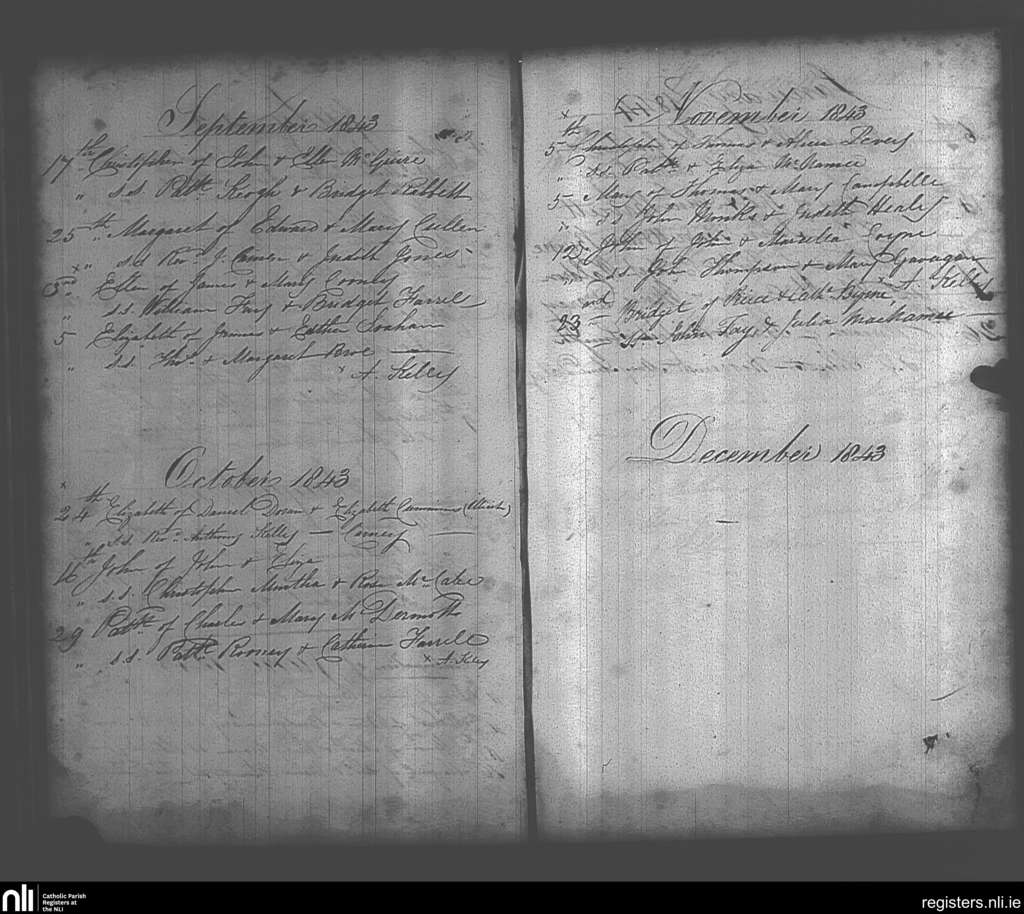 September 1843
17th Christopher of John & Ellen McGuire
" s.s. Patk. Keogh & Bridget Rabbett
25th Margaret of Edward & Mary Cullen
x " s.s. Revd. J. & Judith Jones
3rd Esther of James & Mary
" s.s. William Fay & Bridget Farrell
5 Elizabeth of James & Esther
" s.s. Thos. & Margaret Broe
x A. Kelly
October 1843
x
24th Elizabeth of Daniel Doran & Elizabeth Cummins
" s.s. Revd. Anthony Kelly —
16th John of John & Eliza
" s.s. Christopher Murtha & Rose McCabe
29 Patk. of Charles & Mary McDermott
" s.s. Patk. Rooney & Catherine Farrell
x A. Kelly
November 1843
x
5th Christopher of Thomas & Alicia
" s.s. Patk. & Eliza McNamee
5 Mary of Thomas & Mary Campbelle
" ss John Monks & Judith Healy
12 John of John & Marcella Coyne
" s.s. John Thompson & Mary Gavagan
A. Kelly
23rd Bridget of & Cath. Byrne
ss John Fay & Julia MacNamee
December 1843
—
nli
Catholic Parish
Registers at
the NLI
registers.nli.ie